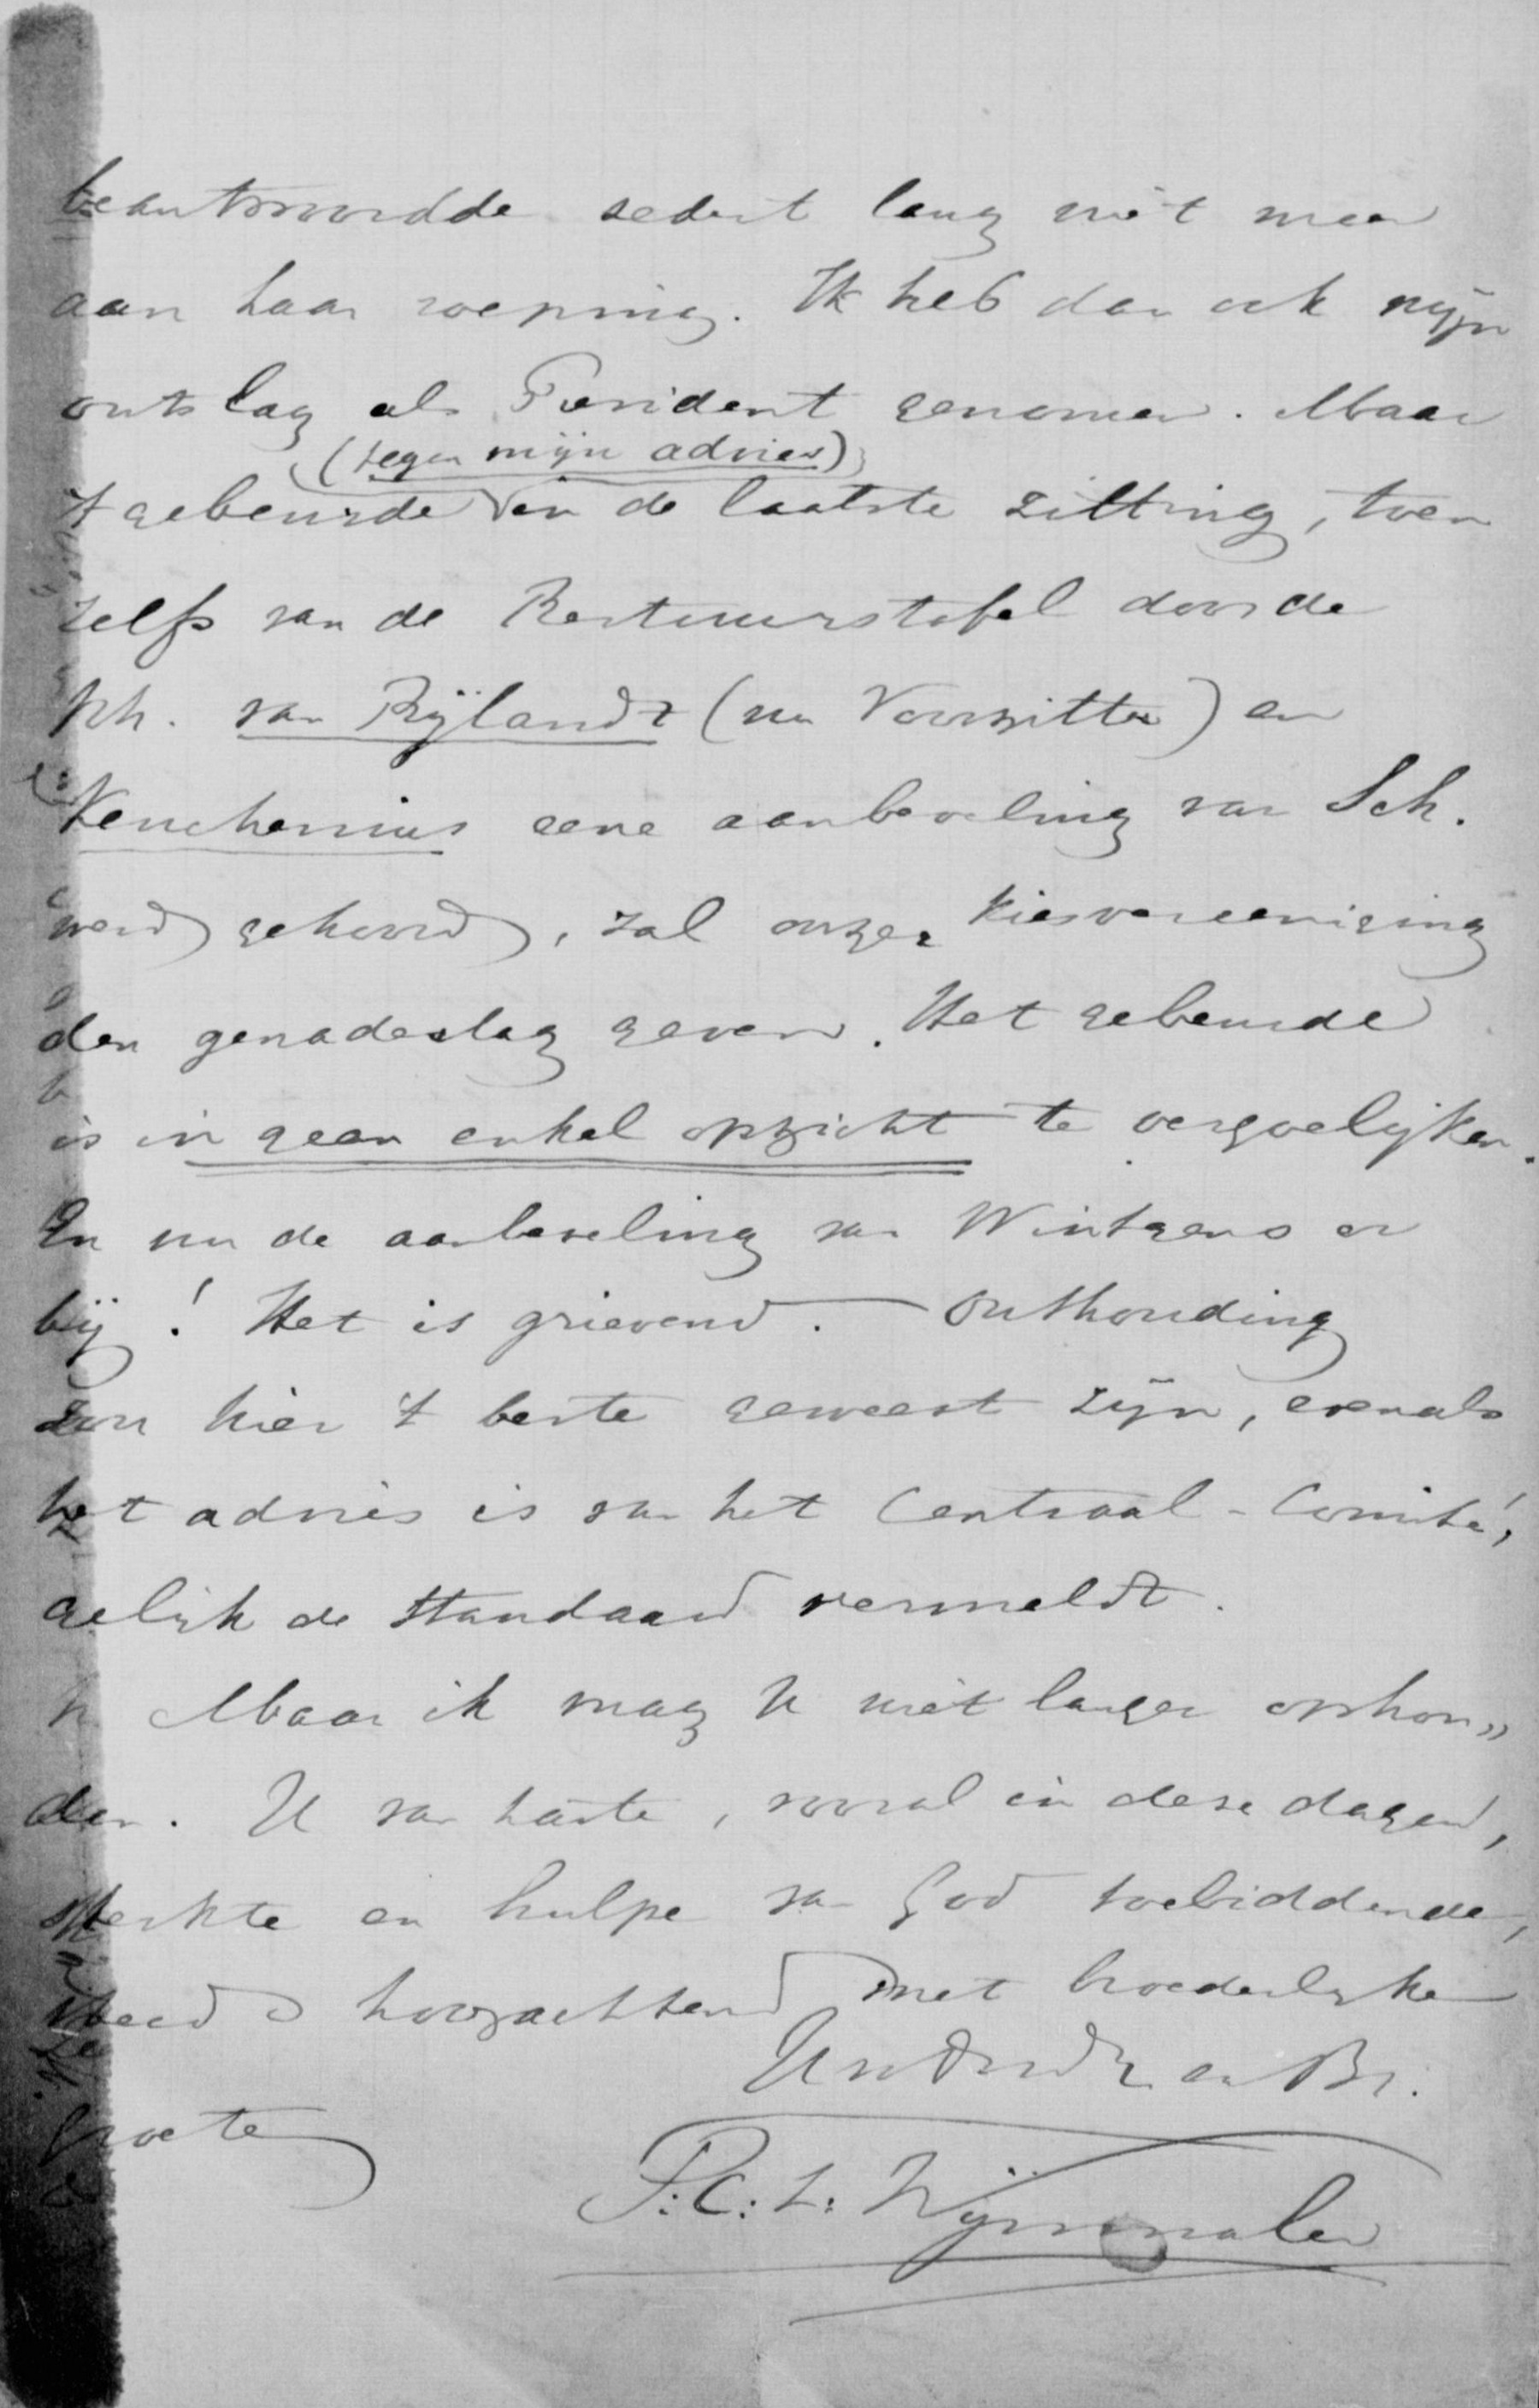 beantwoordde sedert lang niet meer
aan haar roeping. Ik heb dan ook mijn
ontslag als President genomen. Maar
(tegen mijn advies)
't gebeurde in de laatste zitting, toen
zelfs van de Bestuurstafel door de
hh. van Bijlandt (nu Voorzitter) en
Keuchenius eene aanbeveling van Sch.
werd gehoord, zal onze kiesvereeniging
den genadeslag geven. Het gebeurde
is in geen enkel opzicht te vergoelijken.
En nu de aanbeveling van Wintgens er
bij! Het is grievend. Onthouding
zou hier 't beste geweest zijn, evenals
het advies is van het Centraal-Comité,
gelijk de Standaard vermeldt.
Maar ik mag U niet langer ophou„
den. U van harte, vooral in deze dagen,
sterkte en hulpe van God toebiddende,
steeds hoogachtend met broederlijke
groete
Uw dw en Br.
P.C.L. Wijnmalen